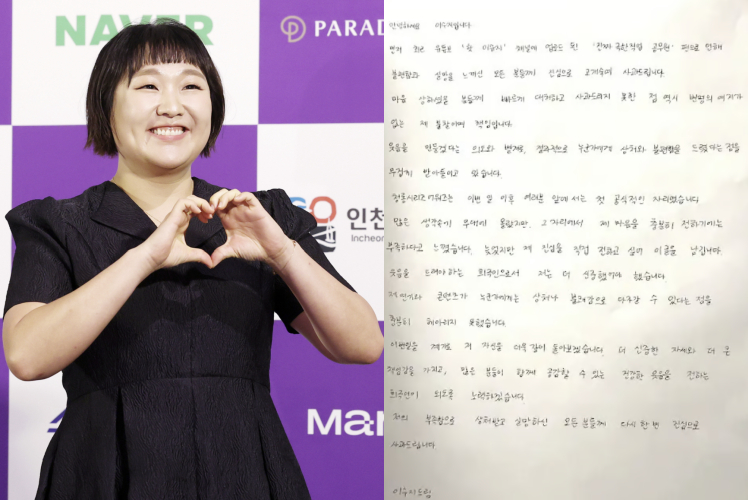 NAVER
PARAD
인천
Incheo
Man
안녕하세요 이수지입니다.
먼저 최근 유튜브 '핫 이슈지' 채널에 업로드 된 '진짜 극한직업 공무원' 편으로 인해
불편함과 실망을 느끼신 모든 분들께 진심으로 고개숙여 사과드립니다.
마음 상하셨을 분들께 빠르게 대처하고 사과드리지 못한 점 역시 변명의 여지가
없는 제 불찰이며 책임입니다.
웃음을 만들겠다는 의도와 별개로, 결과적으로 누군가에게 상처와 불편함을 드렸다는 점을
무겁게 받아들이고 있습니다.
청룡시리즈어워즈는 이번 일 이후 여러분 앞에 서는 첫 공식적인 자리였습니다.
많은 생각속에 무대에 올랐지만, 그 자리에서 제 마음을 충분히 전하기에는
부족하다고 느꼈습니다. 늦었지만 제 진심을 직접 전하고 싶어 이 글을 남깁니다.
웃음을 드려야 하는 희극인으로서 저는 더 신중했어야 했습니다.
제 연기와 콘텐츠가 누군가에게는 상처나 불쾌감으로 다가갈 수 있다는 점을
충분히 헤아리지 못했습니다.
이번일을 계기로 저 자신을 더욱 깊이 돌아보겠습니다. 더 신중한 자세와 더 큰
책임감을 가지고, 많은 분들이 함께 공감할 수 있는 건강한 웃음을 전하는
희극인이 되도록 노력하겠습니다.
저의 부족함으로 상처받고 실망하신 모든 분들께 다시 한 번 진심으로
사과드립니다.
이수지 드림